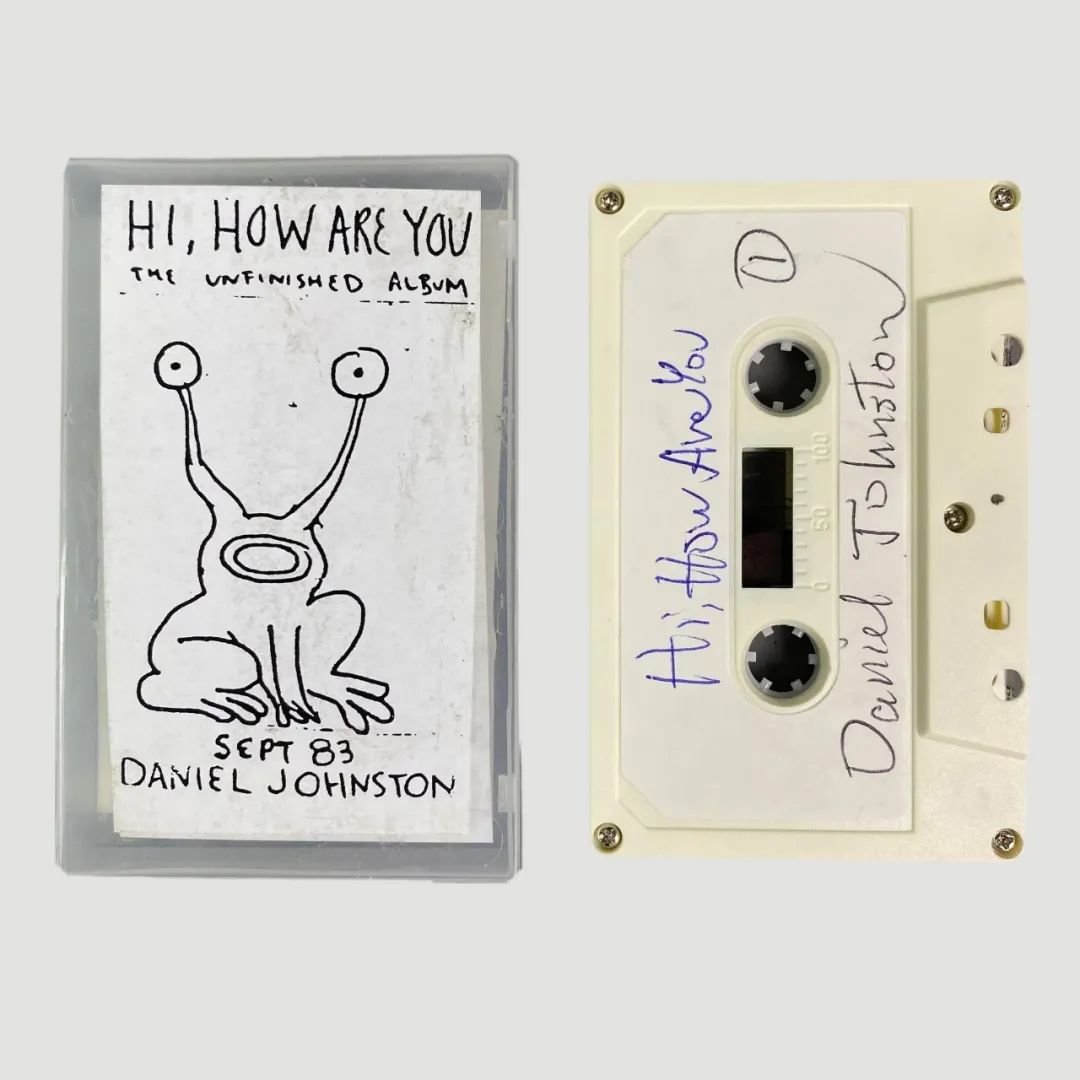 HI, HOW ARE YOU
THE UNFINISHED ALBUM
SEPT 83
DANIEL JOHNSTON
1
Hi, How Are You
0 50 100
Daniel Johnston